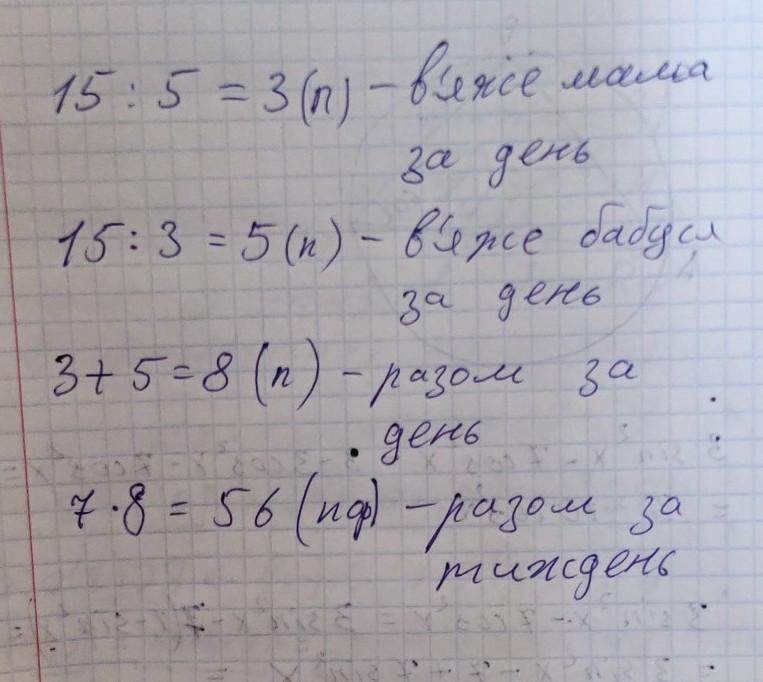 15 : 5 = 3 (п) – в'яже мама
за день
15 : 3 = 5 (п) – в'яже бабуся
за день
3 + 5 = 8 (п) – разом за
день
7 · 8 = 56 (пар) – разом за
тиждень